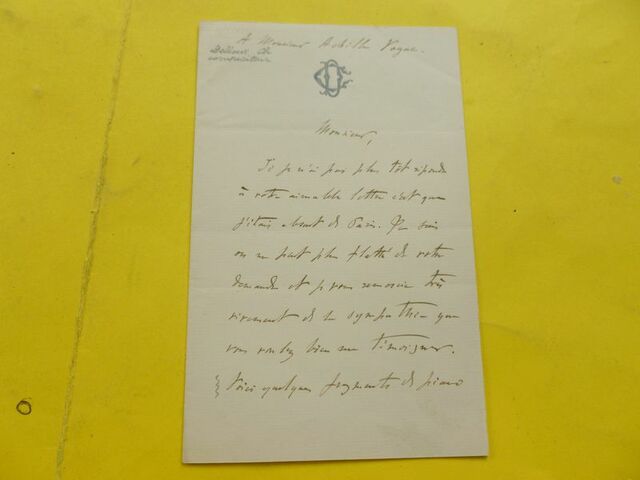 A Monsieur Achille
Delioux Ch
compositeur
Monsieur,
Si je n'ai pas plus tôt répondu
à votre aimable lettre c'est que
j'étais absent de Paris. Je suis
on ne peut plus flatté de votre
demande et je vous remercie très
vivement de la sympathie que
vous voulez bien me témoigner.
Voici quelques fragments de piano